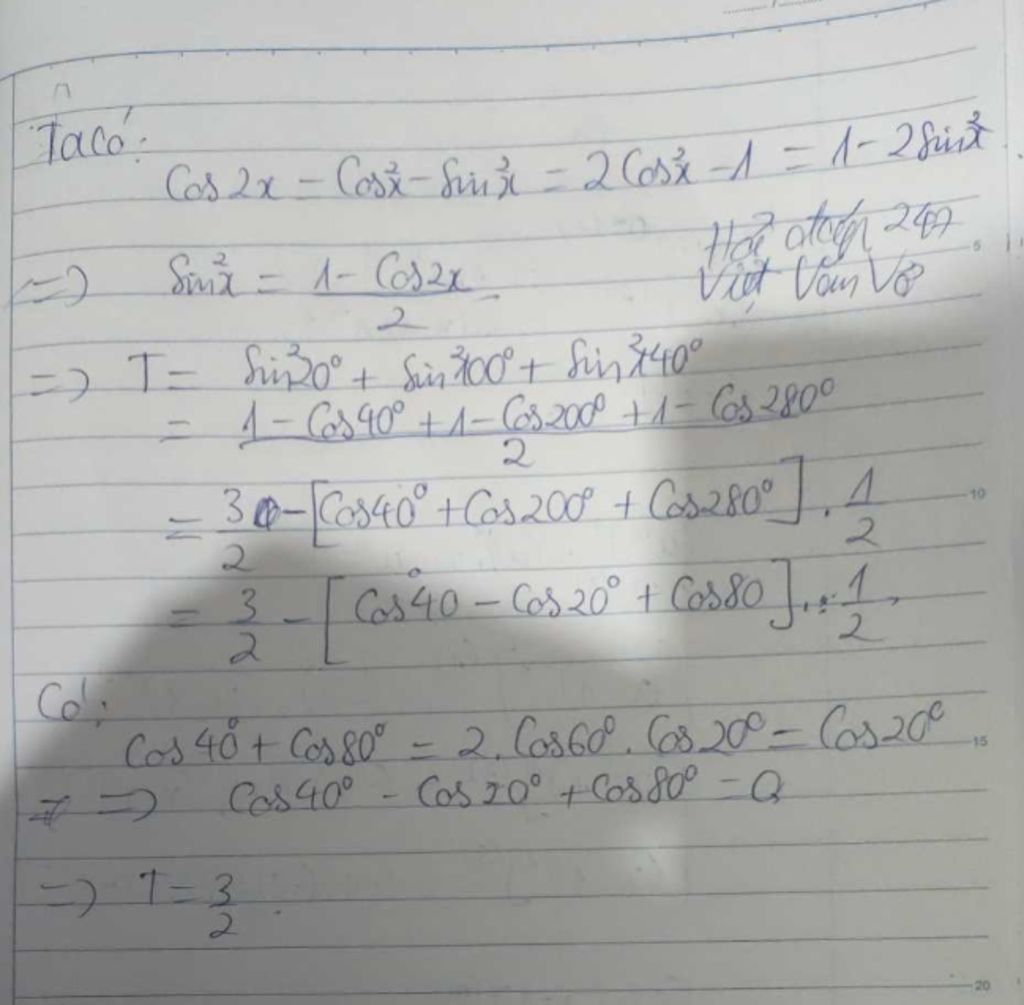 Ta có:
Cos2x = Cos²x - Sin²x = 2Cos²x - 1 = 1 - 2Sin²x
247
Việt Vam Võ
=> Sin²x = (1 - Cos2x)/2
=> T = Sin²20° + Sin²100° + Sin²140°
= (1 - Cos40° + 1 - Cos200° + 1 - Cos280°)/2
= 3/2 - [Cos40° + Cos200° + Cos280°] . 1/2
= 3/2 - [Cos40° - Cos20° + Cos80] . 1/2
Có:
Cos40° + Cos80° = 2.Cos60°.Cos20° = Cos20°
=> Cos40° - Cos20° + Cos80° = 0
=> T = 3/2
5
10
15
20